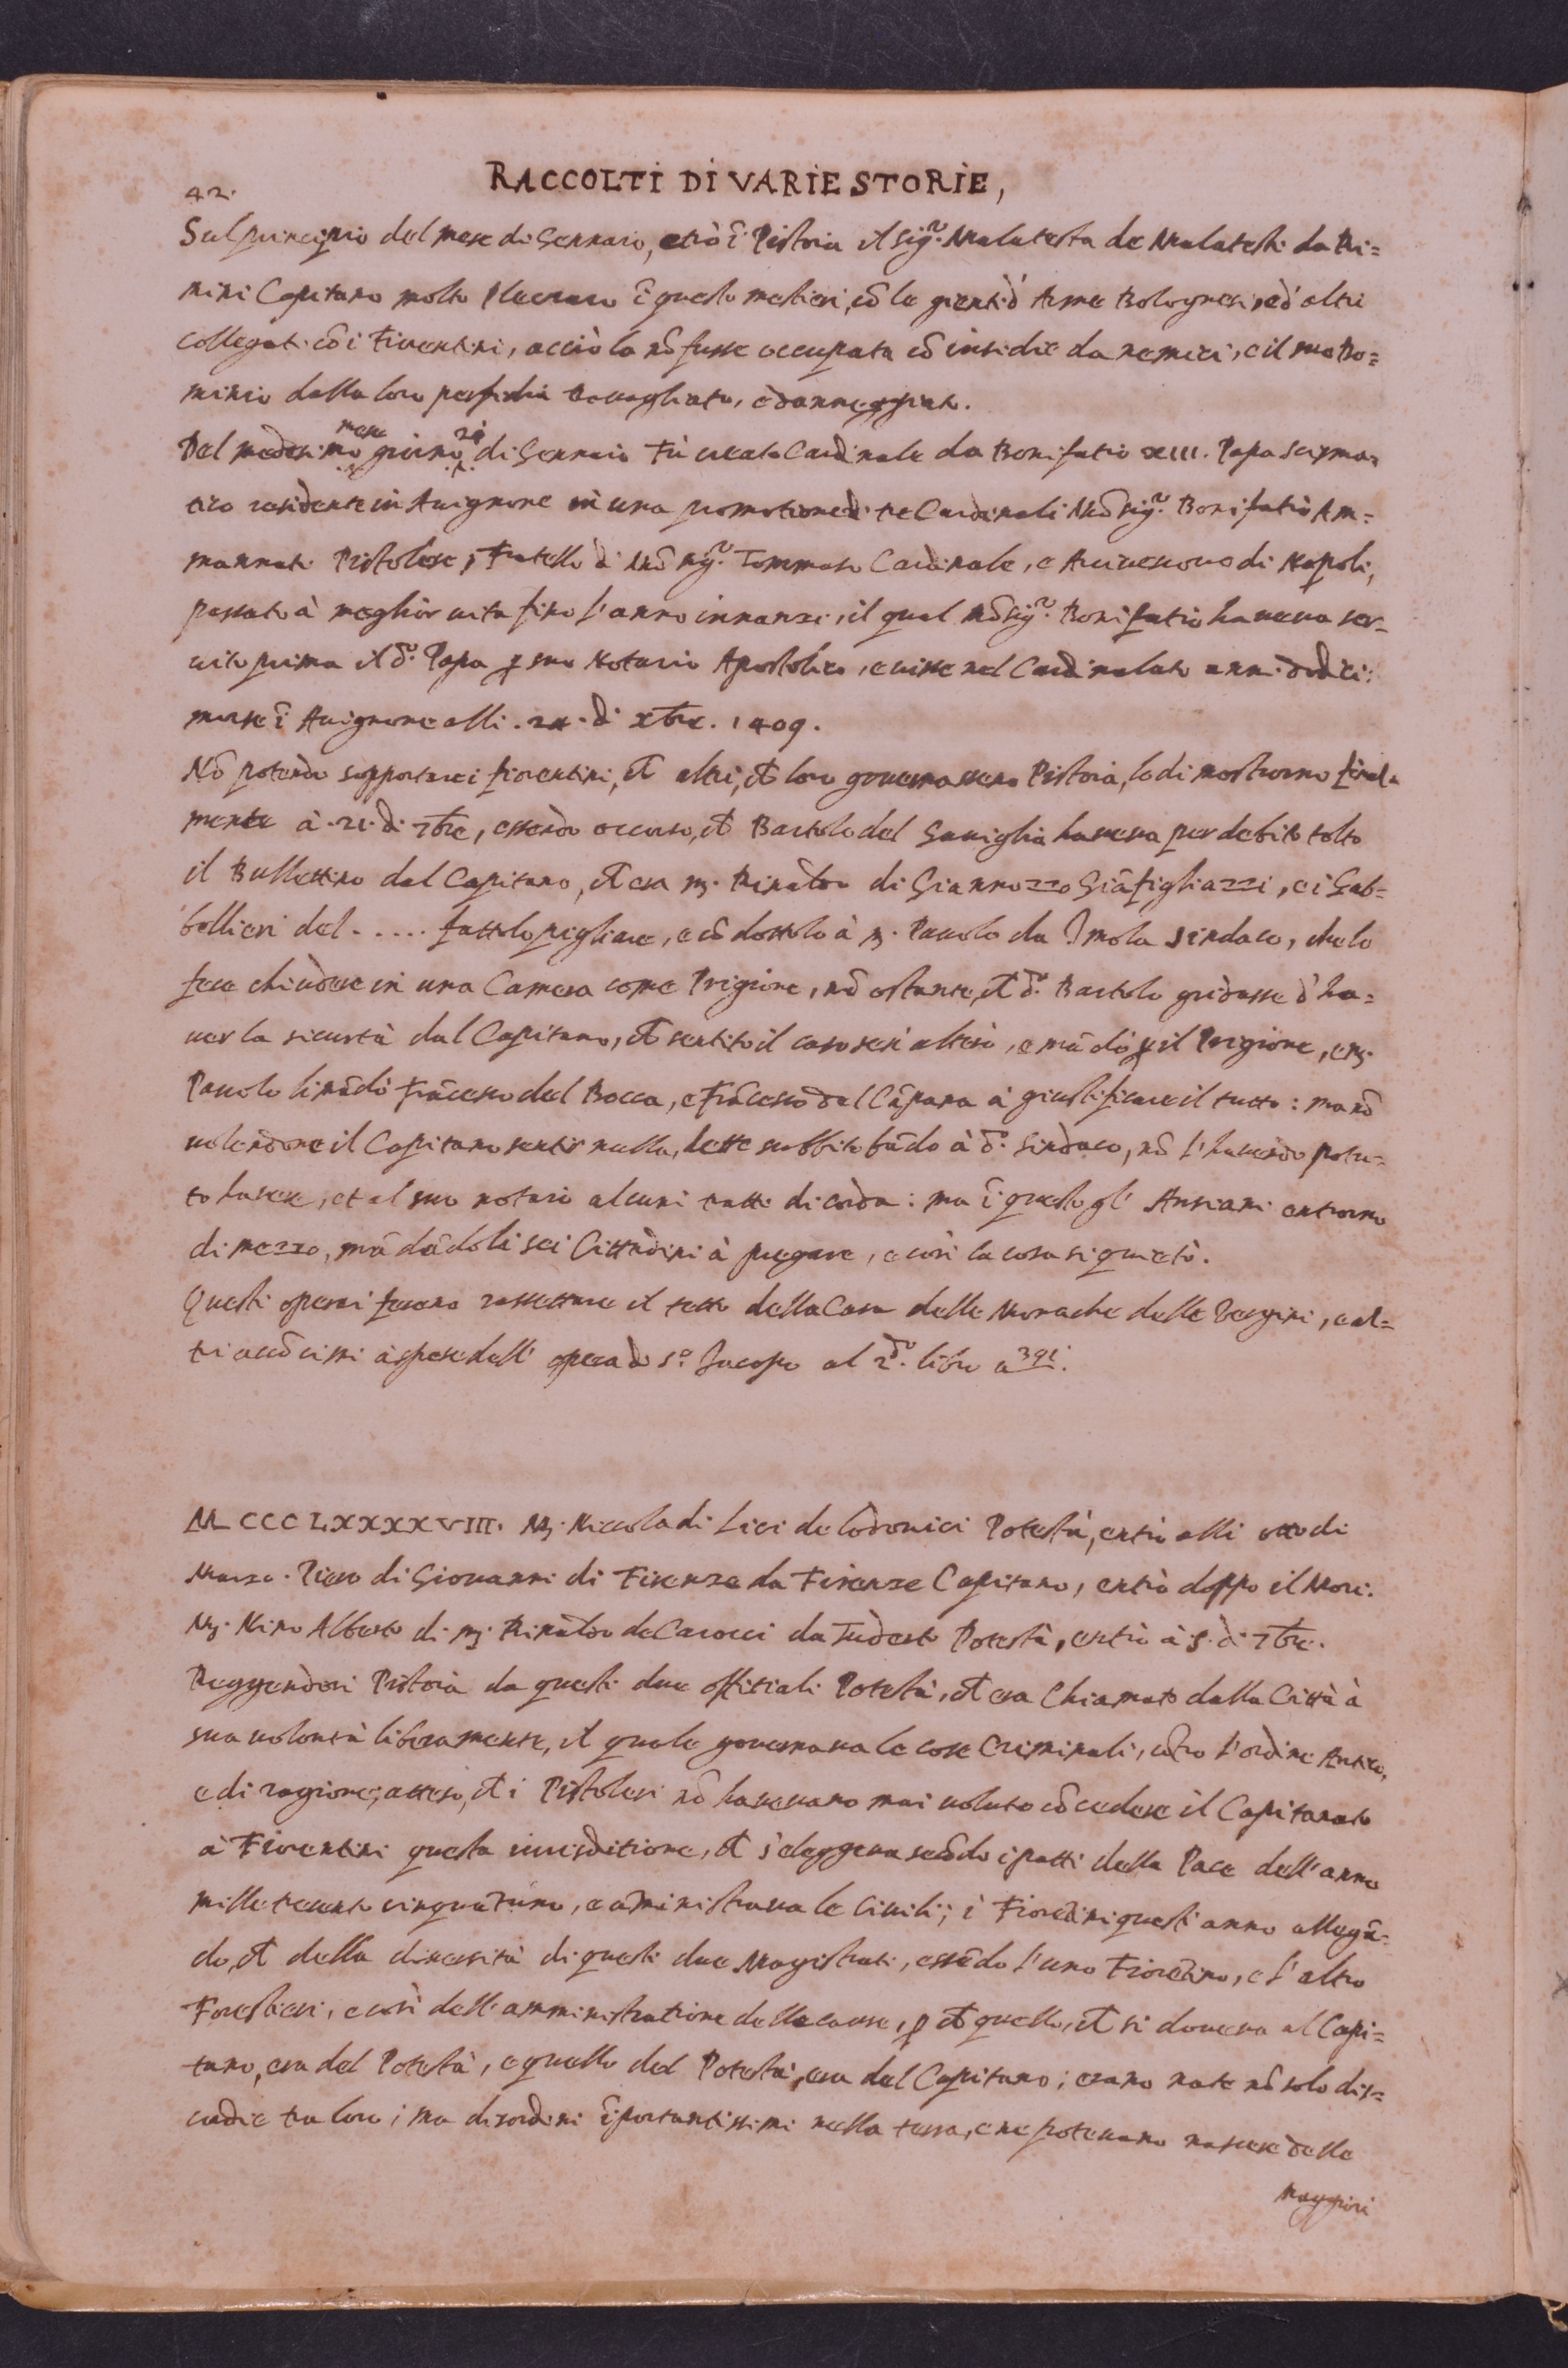 RACCOLTI DI VARIE STORIE,
42.
Sul principio del mese di Gennaio, etrò ĩ Pistoia il Sig.r Malatesta de Malatesti da Ri=
mini Capitano molto ĩ questo mestieri, cõ le gienti d' Arme Bolognesi, ed' altri
collegati cõ i Fiorentini, acciò la nõ fusse occupata cõ insidie da nemici, e il suo Do=
minio dalla loro perfidia travagliato, e danneggiato.
Del medesimo mese giorno 21 di Gennaio Fù creato Cardinale da Bonifatio XIII. Papa Scisma=
tico residente in Avignone in una promotione di tre Cardinali Mõsig.r Bonifatio Am=
mannati Pistolese, Fratello di Mõsig.r Tommaso Cardinale, e Arcivescovo di Napoli,
passato à meglior vita fino l'anno innanzi, il qual Mõsig.r Bonifatio haveva ser=
vito prima il d.o Papa ꝑ suo Notario Apostolico, e visse nel Cardinalato anni dodici:
morse ĩ Avignone alli . di xbre. 1409.
Nõ potendo supportare i fiorentini, ch altri, ch loro governassero Pistoia, lo dimostrorno final=
mente à .21. di 7bre, essendo occorso, ch Bartolo del Gaviglia haveva per debito tolto
il Bullettino dal Capitano, ch era m. Rinaldo di Giannozzo Giãfigliazzi, e i Gab=
bellieri del ..... fattolo pigliare, e cõdottolo à m. Pavolo da Imola sindaco, che lo
fece chiudere in una Camera come Prigione, nõ ostante, ch d.o Bartolo gridasse d'ha=
ver la sicurtà dal Capitano, ch sentito il caso altero, e mãdò ꝑ il Prigione, e m.
Pavolo li mãdò Frãcesco del Bocca, e Frãcesco del Cãpana à giustificare il tutto: ma nõ
volendone il Capitano sentir nulla, dette subbito bãdo à d.o Sindaco, nõ l'havendo potu=
to havere, et al suo notaio alcuni tratti di corda: ma ĩ questo gl' Anziani entrorno
di mezzo, mãdãdoli sei Cittadini à pregare, e così la cosa si quietò.
Questi operai fecero rassettare il tetto della Casa delle Monache delle Vergini, e al=
tri accõcimi à spese dell' opera di S.o Jacopo al 2.do libro a 391.
MCCCLXXXXVIII. M. Niccola di Lici de Lodovici Potestà, entrò alli otto di
Marzo. Piero di Giovanni di Firenze da Firenze Capitano, entrò doppo il Mori.
M. Nino Alberto di m. Rinaldo de Carocci da Tuderto Potestà, entrò à .5. di 7bre.
Reggendosi Pistoia da questi due offitiali Potestà, ch era Chiamato dalla Città à
sua volontà liberamente, il quale governava le cose Criminali, cõtro l'ordine Antico,
e di ragione; atteso, ch i Pistolesi nõ havevano mai voluto cõcedere il Capitanato
à Fiorentini questa iurisditione, ch s'eleggeva secõdo i patti della Pace dell' anno
mille trecento cinquãtuno, e aministrava le Civili; i Fiorẽtini quest' anno allegã=
do, ch dalla diversità di questi due Magistrati, essẽdo l'uno Fiorẽtino, e l'altro
Forestieri, e così dell' amministratione delle cause, ꝑ ch quello, ch si doveva al Capi=
tano, era del Potestà, e quello del Potestà, era del Capitano; erano nate nõ solo dis=
cordie tra loro; ma disordini ĩportantissimi nella terra, e ne potevano nascere delle
maggiori